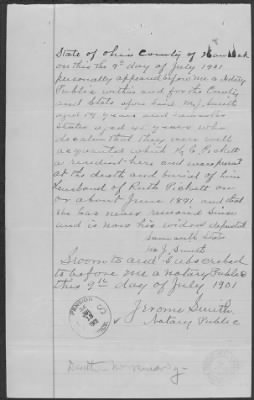 State of Ohio County of Hancock
on this the 9th day of July 1901
personally appeared before me a Notary
Public within and for the County
and State afore said M J Smith
aged 59 years and
States aged 45 years who
declare that they were well
acquainted with H. C. Pickett
a resident here and was present
at the death and burial of him
husband of Ruth Pickett on
or about June 1891 and that
she has never married since
and is now his widow
Samanth States
M J Smith
Sworn to and Subscribed
to before me a Notary Public
this 9th day of July 1901
Jerome Smith
Notary Public
Death - No remarriage